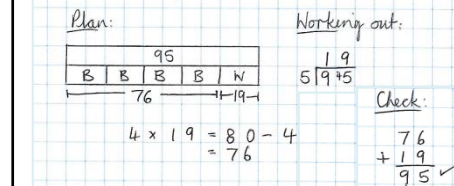 Plan:
95
B B B B W
76 19
4 x 19 = 80 - 4
= 76
Working out:
19
5 9 45
Check:
76
+ 19
95 ✓